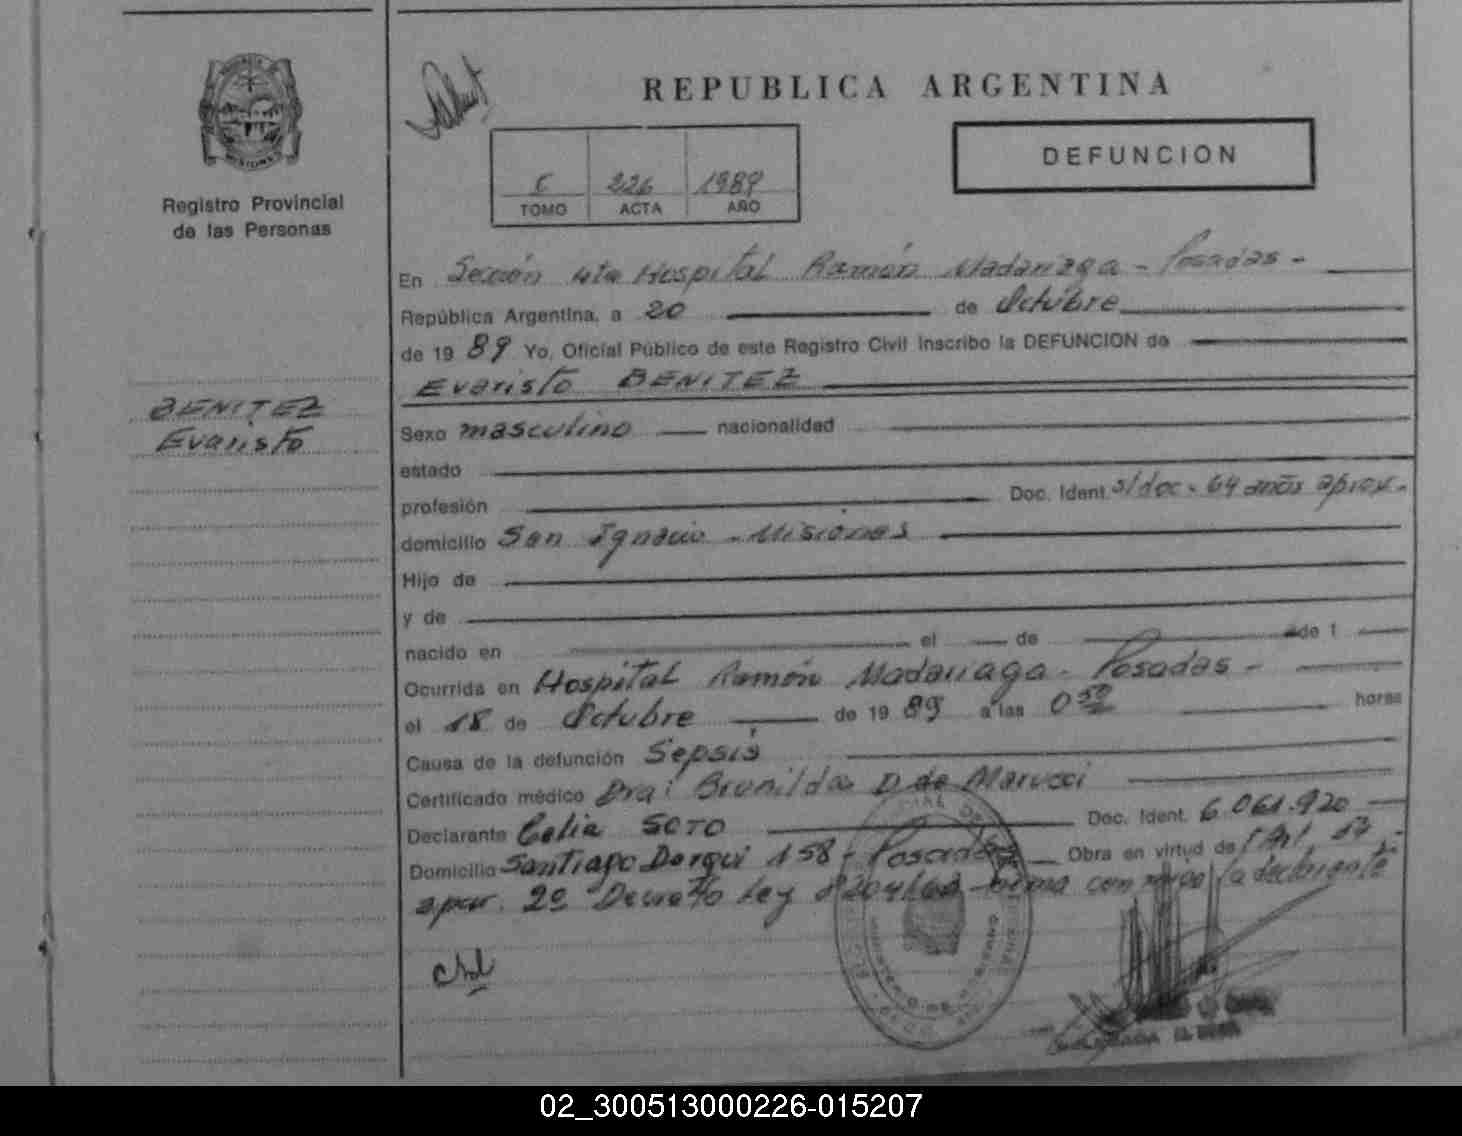 REPUBLICA ARGENTINA
DEFUNCION
E 226 1989
TOMO ACTA AÑO
MISIONES
Registro Provincial
de las Personas
BENITEZ
Evaristo
En Sección 4ta Hospital Ramón Madariaga - Posadas -
República Argentina, a 20 de Octubre
de 19 89 Yo, Oficial Público de este Registro Civil inscribo la DEFUNCION de
Evaristo BENITEZ
Sexo masculino nacionalidad
estado
profesión Doc. Ident. s/doc - 64 años aprox -
domicilio San Ignacio - Misiones
Hijo de
y de
nacido en el de de 1
Ocurrida en Hospital Ramón Madariaga - Posadas -
el 18 de Octubre de 19 89 a las 0 50 horas
Causa de la defunción Sepsis
Certificado médico Dra: Brunilda D. de Marucci
Declarante Celia SOTO Doc. Ident. 6.061.920
Domicilio Santiago Derqui 158 - Posadas Obra en virtud de Art. 57
apar. 2º Decreto Ley 8204/63 - firma con migo la declarante
02_300513000226-015207